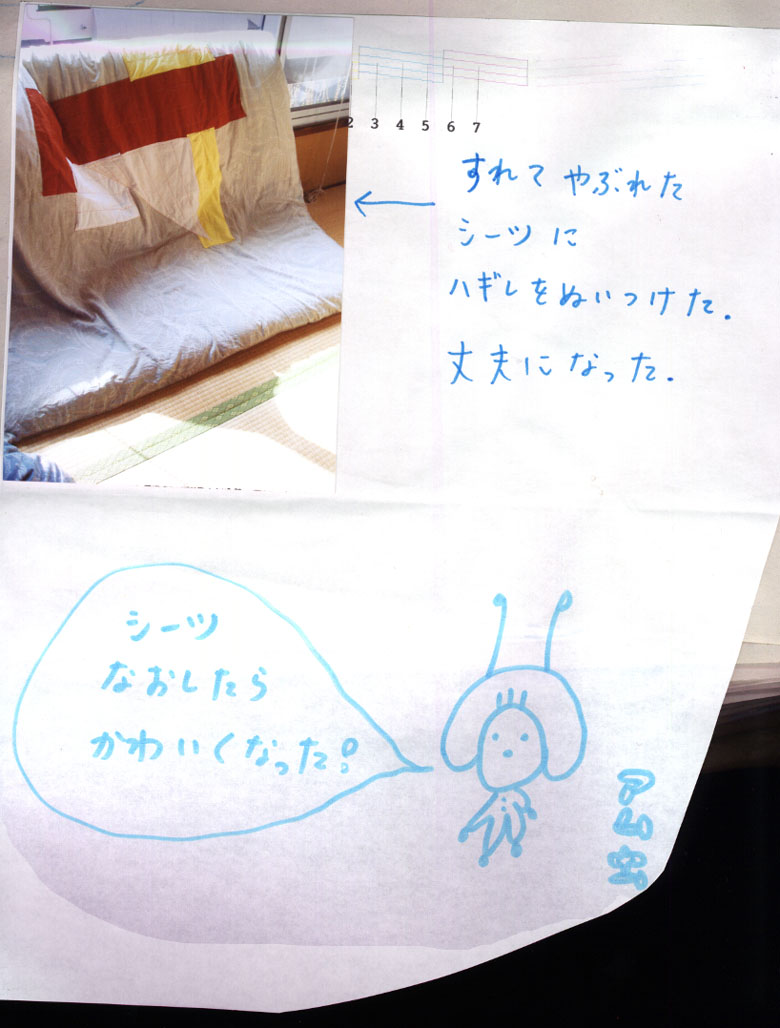 2 3 4 5 6 7
すれて やぶれた
シーツ に
ハギレをぬいつけた.
丈夫になった.
シーツ
なおしたら
かわいくなった!
アム虫